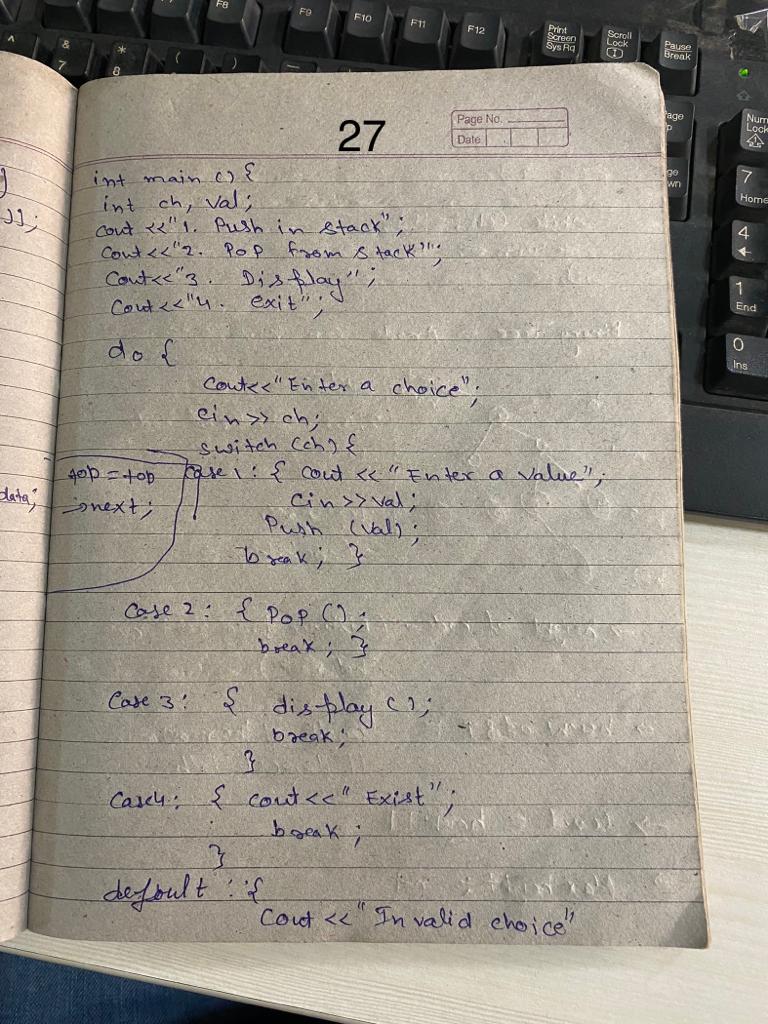 F8
F9
F10
F11
F12
Print
Screen
Sys Rq
Scroll
Lock
Pause
Break
&
7
*
8
(
)
27
Page No.
Date
Num
Lock
7
Home
4
1
End
0
Ins
]];
data;
int main () {
int ch, val;
cout <<"1. Push in stack";
Cout<<"2. POP from stack";
Cout<<"3. Display";
Cout<<"4. exit";
do {
Cout<<"Enter a choice";
cin>> ch;
switch (ch) {
top = top
→next;
Case 1: { cout << "Enter a value";
Cin>>val;
Push (val);
break; }
Case 2: { POP ();
break; }
Case 3: { display ();
break;
}
Case4: { cout<<" Exist";
break;
}
defoult : {
Cout <<" In valid choice"